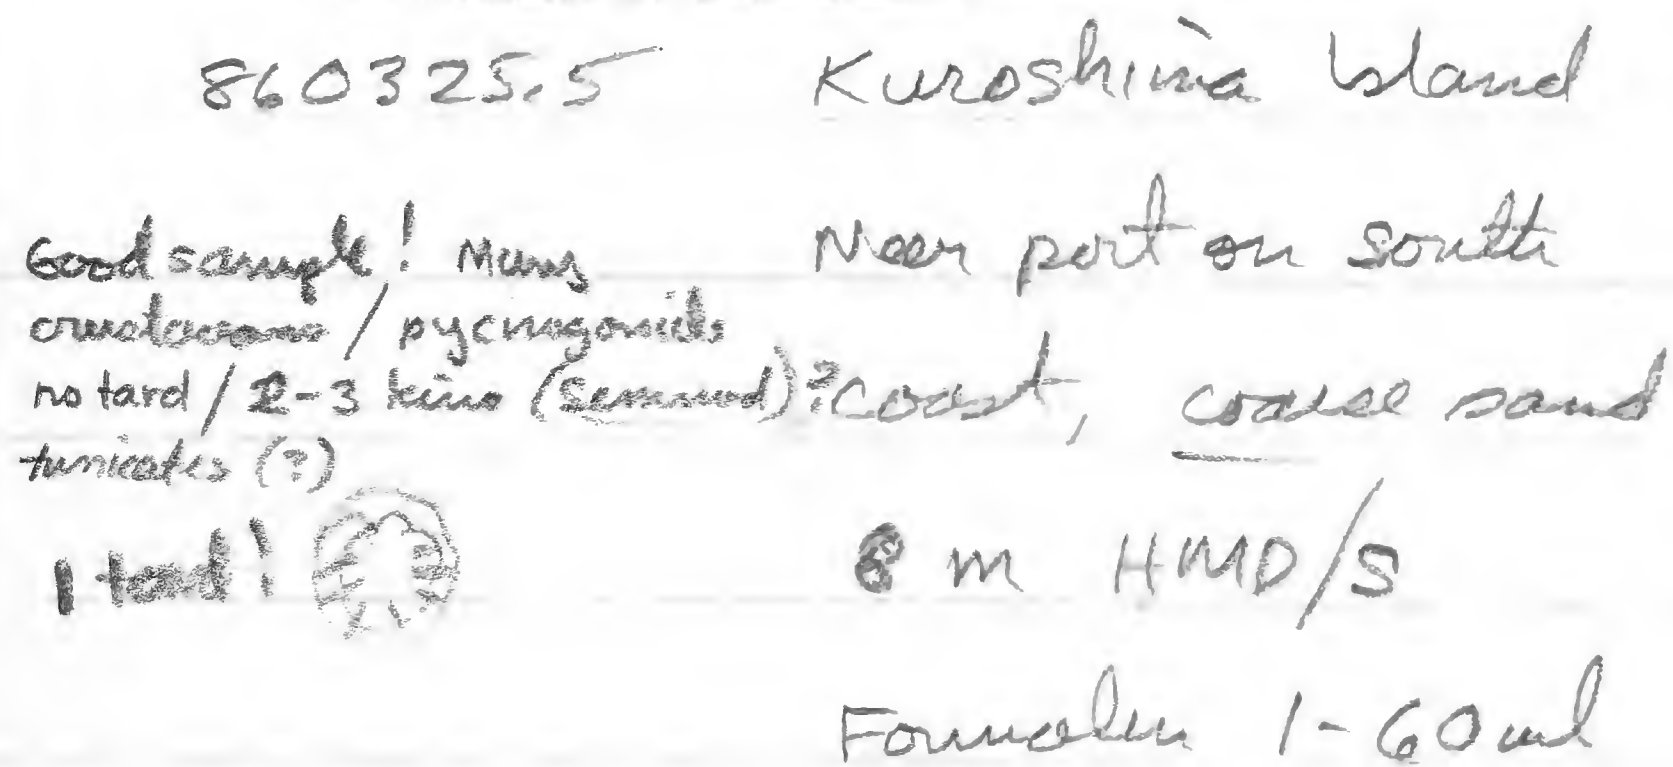 860325.5
Kuroshima Island
Near port on south
coast, coarse sand
8 m HMD/S
Formalin 1-60ml
Good sample! Many
crustaceans / pycnogonids
no tard / 2-3 kino ( )?
tunicates (?)
1 tard!